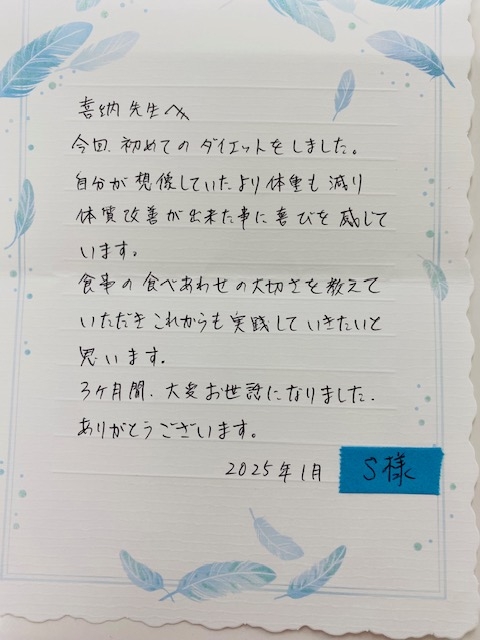 喜納先生へ
今回、初めてのダイエットをしました。
自分が想像していたより体重も減り
体質改善が出来た事に喜びを感じて
います。
食事の食べあわせの大切さを教えて
いただきこれからも実践していきたいと
思います。
3ヶ月間、大変お世話になりました。
ありがとうございます。
2025年1月 S様